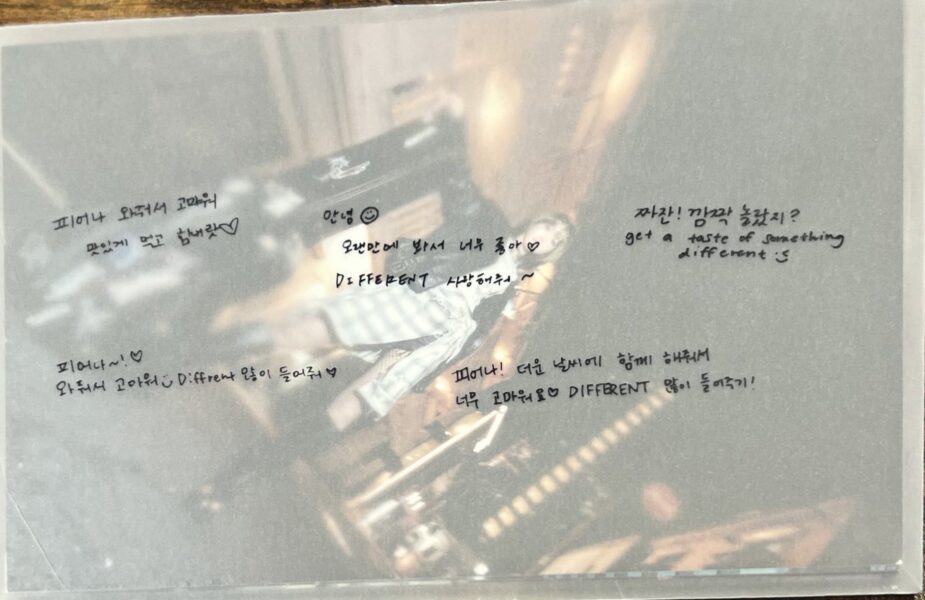 피어나 와줘서 고마워
맛있게 먹고 힘내랏♡
안녕☺
오랜만에 봐서 너무 좋아♡
DIFFERENT 사랑해줘~
짜잔! 깜짝 놀랐지?
get a taste of something
different :S
피어나~!♡
와줘서 고마워 Diffrent 많이 들어줘♥
피어나! 더운 날씨에 함께 해줘서
너무 고마워요♡ DIFFERENT 많이 들어주기!